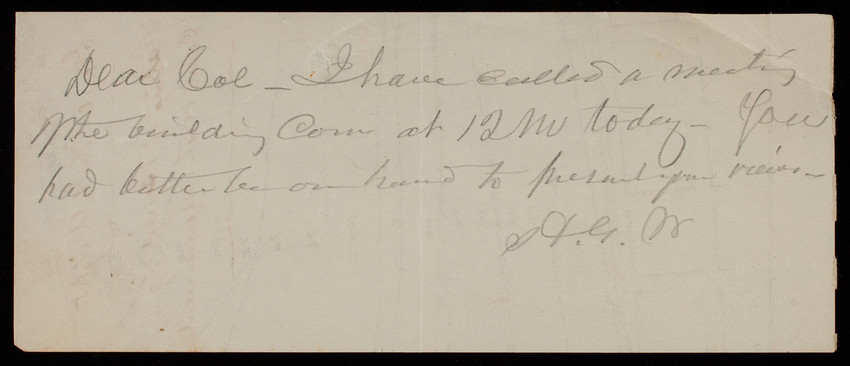 Dear Col – I have called a meeting
of the building Com at 12 M today – You
had better be on hand to present your views –
H. G. W